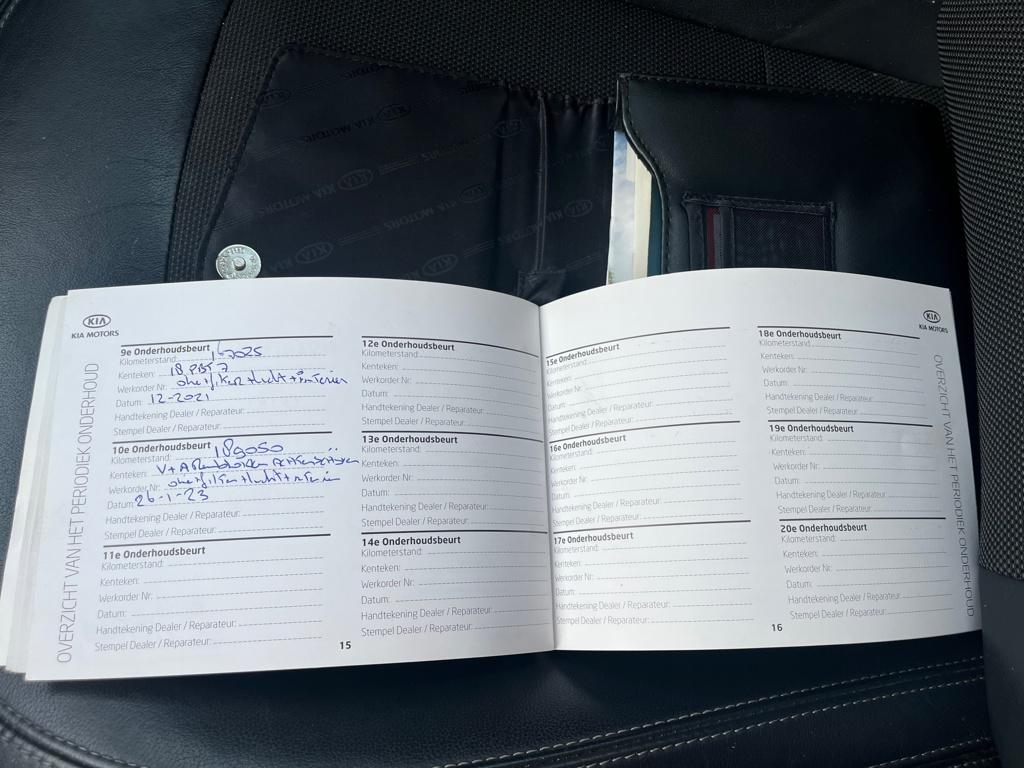 KIA
KIA MOTORS
OVERZICHT VAN HET PERIODIEK ONDERHOUD
9e Onderhoudsbeurt
Kilometerstand:
Kenteken:
Werkorder Nr:
Datum: 12-2021
Handtekening Dealer / Reparateur:
Stempel Dealer / Reparateur:
10e Onderhoudsbeurt
Kilometerstand: 189050
Kenteken:
Werkorder Nr:
Datum: 26-1-23
Handtekening Dealer / Reparateur:
Stempel Dealer / Reparateur:
11e Onderhoudsbeurt
Kilometerstand:
Kenteken:
Werkorder Nr:
Datum:
Handtekening Dealer / Reparateur:
Stempel Dealer / Reparateur:
12e Onderhoudsbeurt
Kilometerstand:
Kenteken:
Werkorder Nr:
Datum:
Handtekening Dealer / Reparateur:
Stempel Dealer / Reparateur:
13e Onderhoudsbeurt
Kilometerstand:
Kenteken:
Werkorder Nr:
Datum:
Handtekening Dealer / Reparateur:
Stempel Dealer / Reparateur:
14e Onderhoudsbeurt
Kilometerstand:
Kenteken:
Werkorder Nr:
Datum:
Handtekening Dealer / Reparateur:
Stempel Dealer / Reparateur:
15
15e Onderhoudsbeurt
Kilometerstand:
Kenteken:
Werkorder Nr:
Datum:
Handtekening Dealer / Reparateur:
Stempel Dealer / Reparateur:
16e Onderhoudsbeurt
Kilometerstand:
Kenteken:
Werkorder Nr:
Datum:
Handtekening Dealer / Reparateur:
Stempel Dealer / Reparateur:
17e Onderhoudsbeurt
Kilometerstand:
Kenteken:
Werkorder Nr:
Datum:
Handtekening Dealer / Reparateur:
Stempel Dealer / Reparateur:
18e Onderhoudsbeurt
Kilometerstand:
Kenteken:
Werkorder Nr:
Datum:
Handtekening Dealer / Reparateur:
Stempel Dealer / Reparateur:
19e Onderhoudsbeurt
Kilometerstand:
Kenteken:
Werkorder Nr:
Datum:
Handtekening Dealer / Reparateur:
Stempel Dealer / Reparateur:
20e Onderhoudsbeurt
Kilometerstand:
Kenteken:
Werkorder Nr:
Datum:
Handtekening Dealer / Reparateur:
Stempel Dealer / Reparateur:
16
KIA
KIA MOTORS
OVERZICHT VAN HET PERIODIEK ONDERHOUD
KIA MOTORS